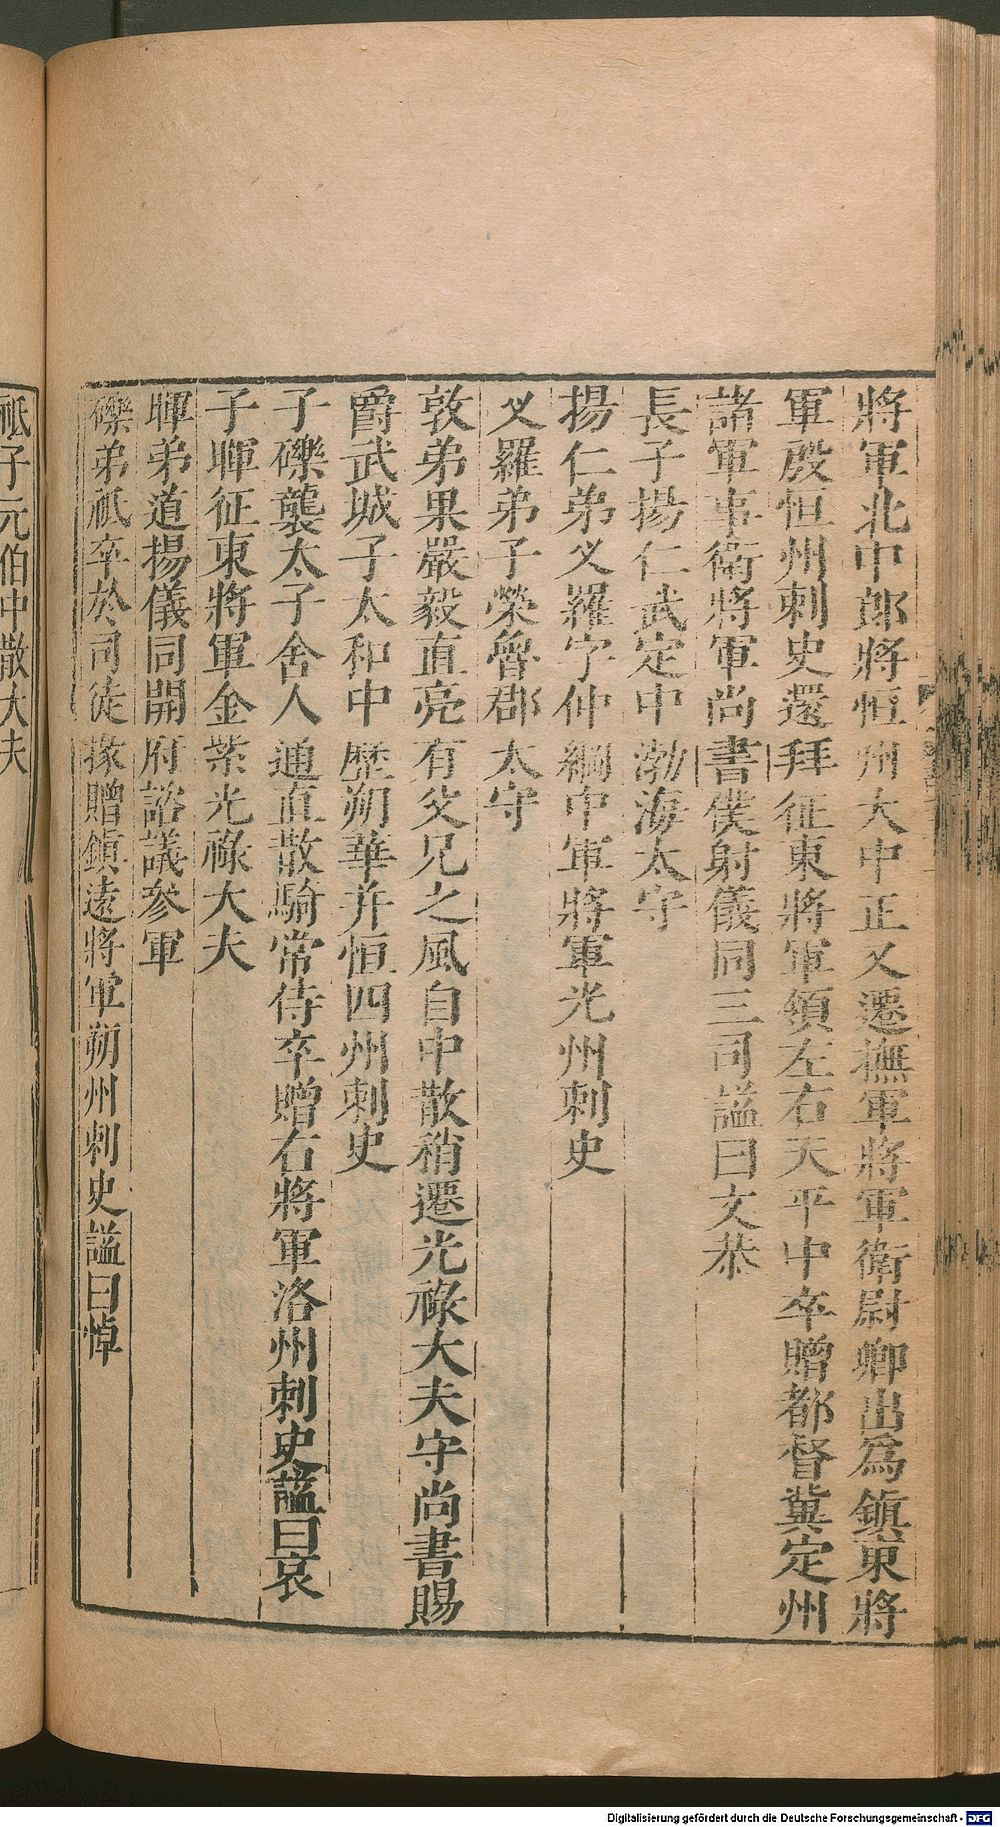 將軍北中郎將恒州大中正又遷撫軍將軍衛尉卿出爲鎮東將
軍殷恒州刺史還拜征東將軍領左右天平中卒贈都督冀定州
諸軍事衛將軍尚書僕射儀同三司謚曰文恭
長子揚仁武定中渤海太守
揚仁弟乂羅字仲綱中軍將軍光州刺史
乂羅弟子榮魯郡太守
敦弟果嚴毅直亮有父兄之風自中散稍遷光祿大夫守尚書賜
爵武城子太和中歷朔華并恒四州刺史
子礫襲太子舍人通直散騎常侍卒贈右將軍洛州刺史謚曰哀
子暉征東將軍金紫光祿大夫
暉弟道揚儀同開府諮議參軍
礫弟祇卒於司徒掾贈鎮遠將軍朔州刺史謚曰悼
祇子元伯中散大夫
Digitalisierung gefördert durch die Deutsche Forschungsgemeinschaft - DFG